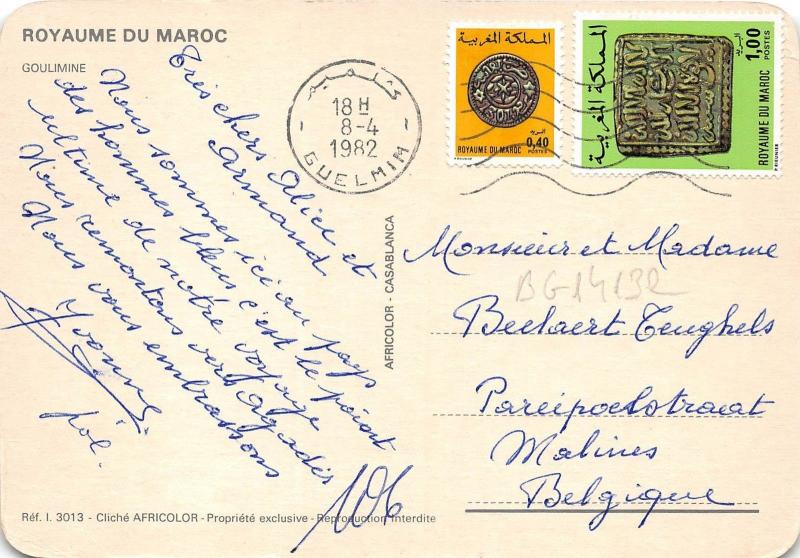 ROYAUME DU MAROC
GOULIMINE
Très chers Alice et
Armand
Nous sommes ici au pays
des hommes bleus c'est le point
ultime de notre voyage
Nous remontons vers Agadir
Nous vous embrassons
Yvonne
Jól.
106
كلميم
18 H
8-4
1982
GUELMIM
المملكة المغربية
البريد
0,40
ROYAUME DU MAROC
POSTES
P. BEUNIER
المملكة المغربية
1,00
البريد
POSTES
ROYAUME DU MAROC
AFRICOLOR - CASABLANCA
Monsieur et Madame
BG14132
Beelaert Tenghels
Malines
Belgique
Réf. I. 3013 - Cliché AFRICOLOR - Propriété exclusive - Reproduction interdite